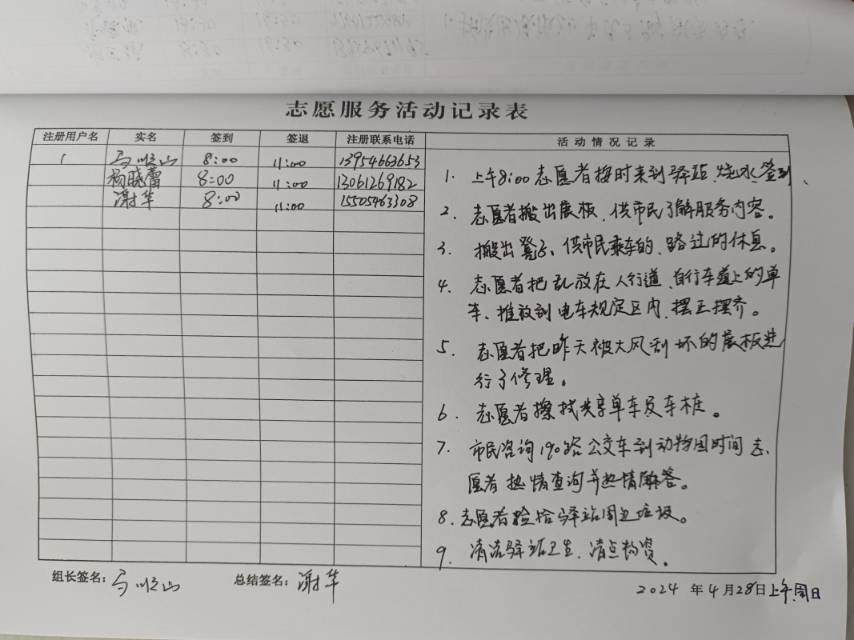 志愿服务活动记录表
注册用户名 实名 签到 签退 注册联系电话 活动情况记录
1 马顺山 8:00 11:00 13954663653
杨晓雷 8:00 11:00 13061269182
谢华 8:00 11:00 15505463308
1. 上午8:00志愿者按时来到驿站、烧水、签到、
2. 志愿者搬出展板、供市民了解服务内容。
3. 搬出凳子、供市民乘车的、路过的休息。
4. 志愿者把乱放在人行道、自行车道上的单
车、推放到电车规定区内、摆正摆齐。
5. 志愿者把昨天被大风刮坏的展板进
行了修理。
6. 志愿者擦拭共享单车及车桩。
7. 市民咨询190路公交车到动物园时间志、
愿者热情查询并热情解答。
8. 志愿者捡拾驿站周边垃圾。
9. 清洁驿站卫生、清点物资。
组长签名：马顺山 总结签名：谢华
2024年4月28日上午周日